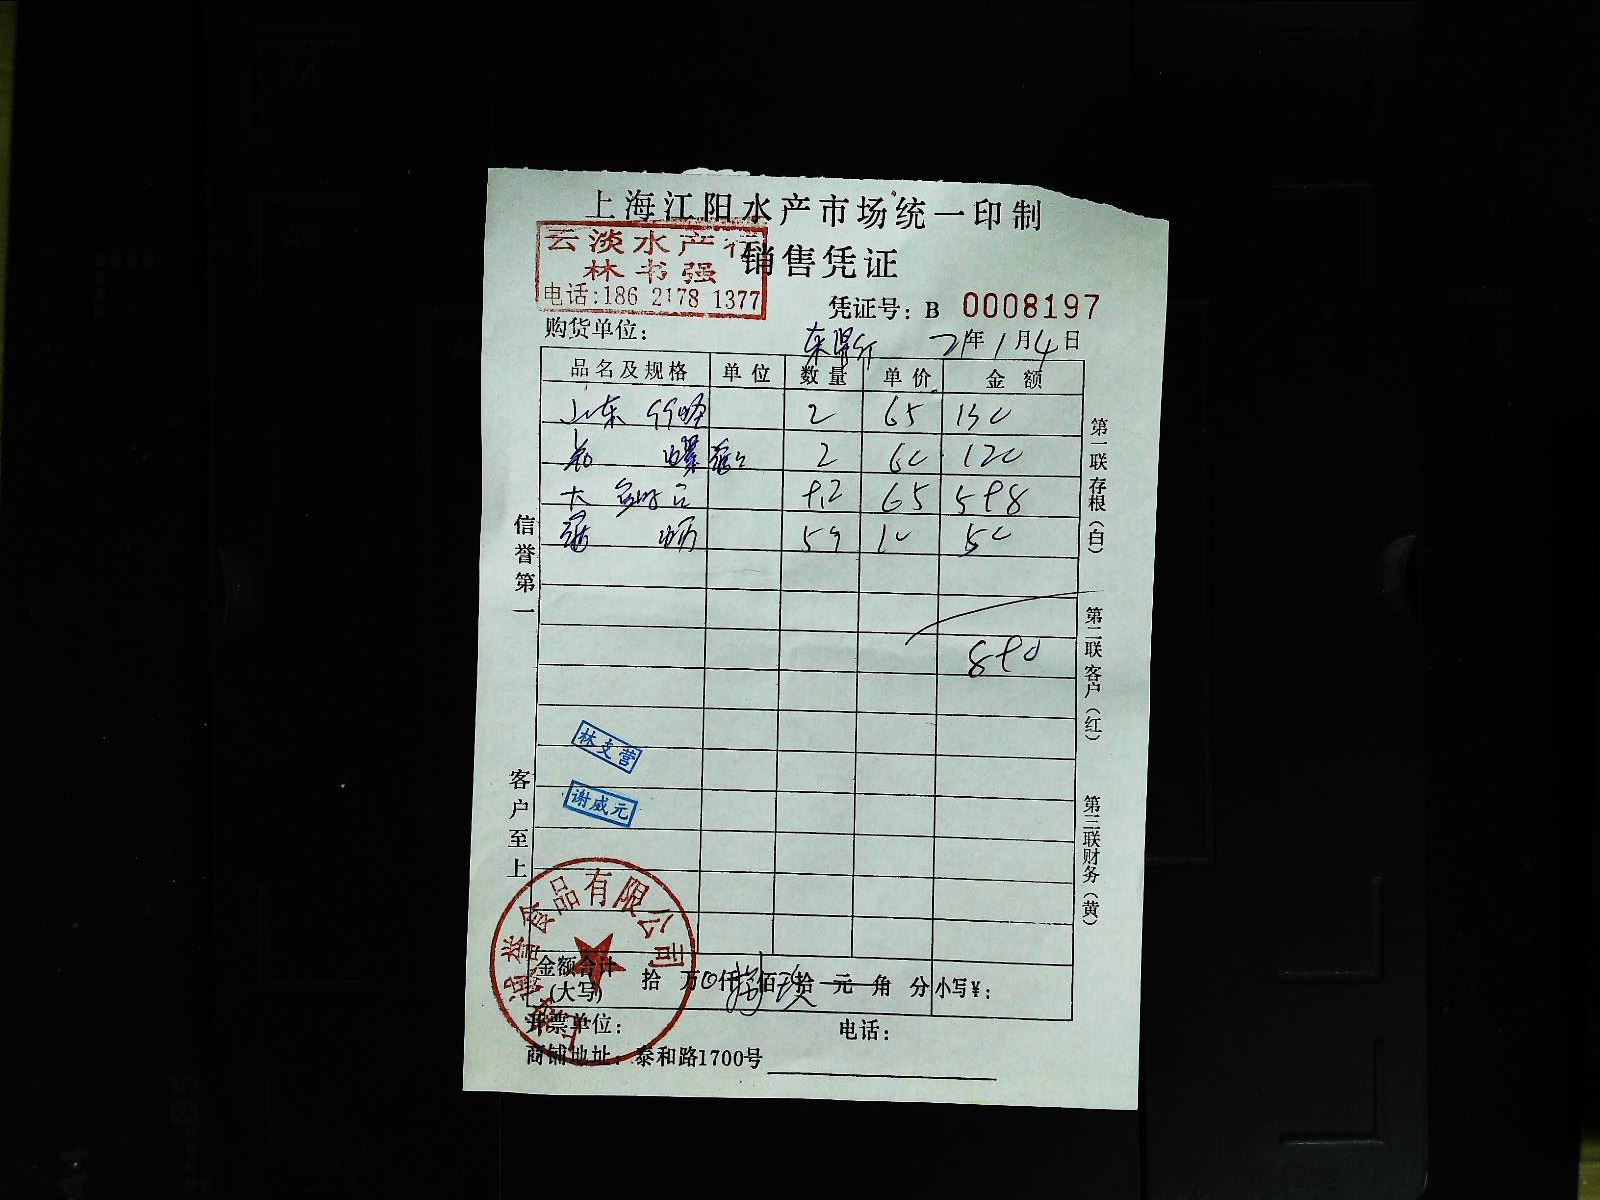 上海江阳水产市场统一印制
云淡水产行
林书强
电话:186 2178 1377
销售凭证
凭证号: B 0008197
购货单位:
21年1月4日
品名及规格 单位 数量 单价 金额
山东 2 65 130
螺 2 60 120
9.2 65 598
50
890
信誉第一
客户至上
第一联存根(白)
第二联客户(红)
第三联财务(黄)
林支营
谢威元
食品有限公司
金额合计(大写) 拾 万 仟 捌佰玖拾 元 角 分 小写¥:
开票单位: 电话:
商铺地址: 泰和路1700号